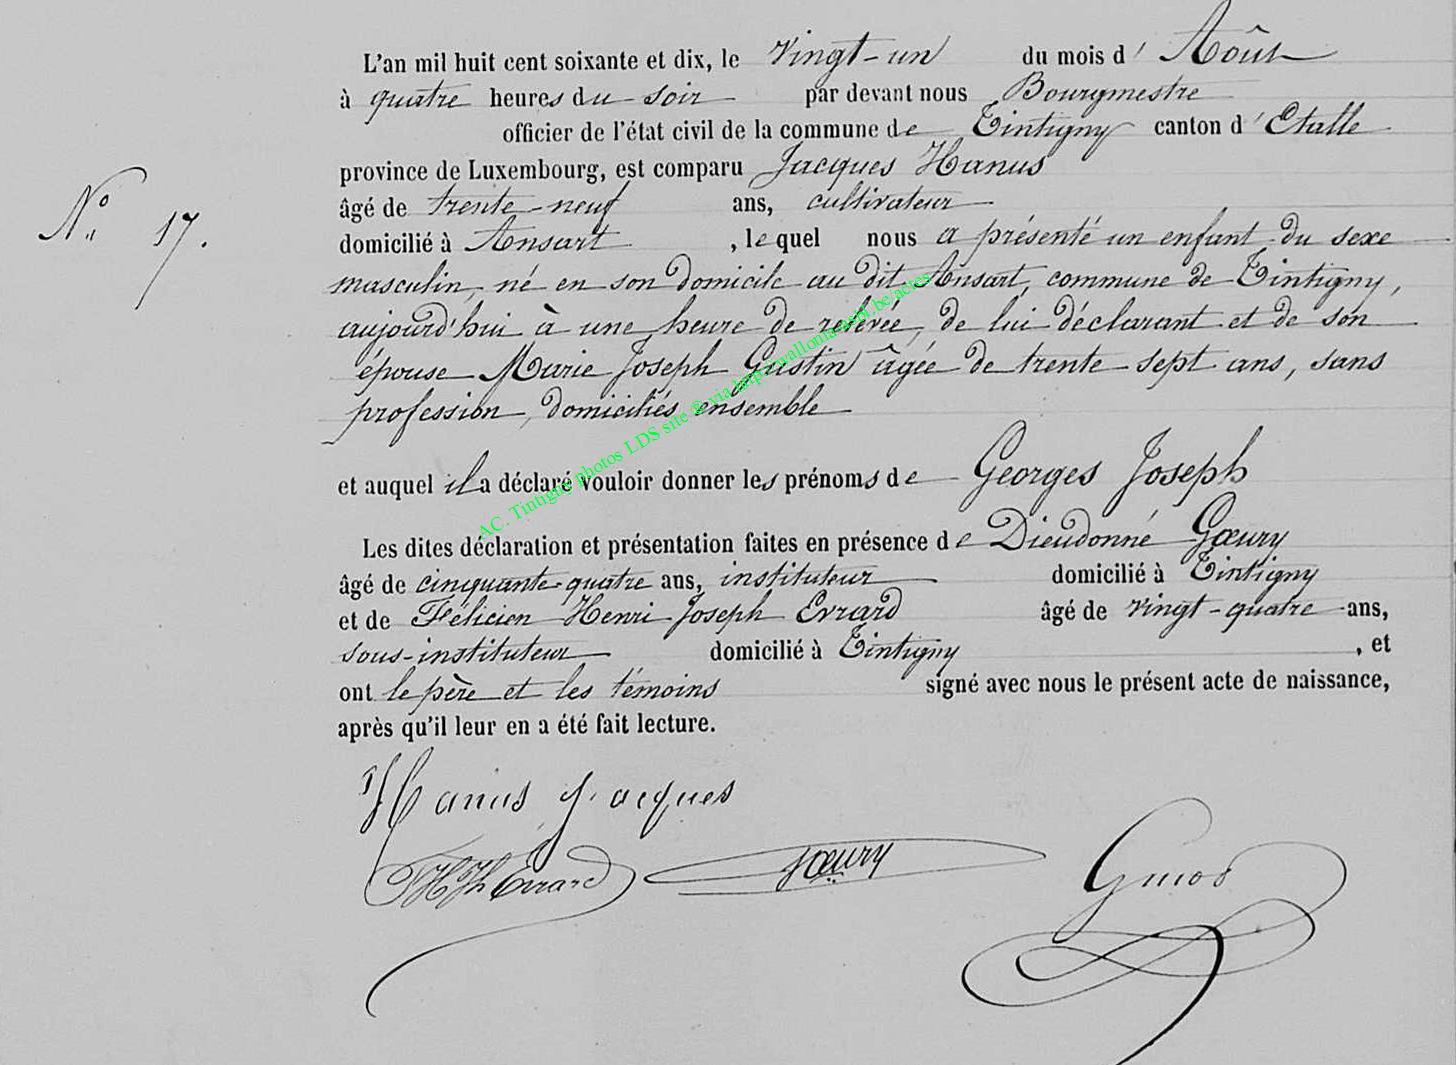 L'an mil huit cent soixante et dix, le vingt-un du mois d' Août
à quatre heures du soir par devant nous Bourgmestre
officier de l'état civil de la commune de Tintigny canton d' Etalle
province de Luxembourg, est comparu Jacques Hanus
âgé de trente-neuf ans, cultivateur
N° 17.
domicilié à Ansart , lequel nous a présenté un enfant du sexe
masculin, né en son domicile au dit Ansart, commune de Tintigny,
aujourd'hui à une heure de relevée, de lui déclarant et de son
épouse Marie Joseph Gustin âgée de trente sept ans, sans
profession, domiciliés ensemble
et auquel il a déclaré vouloir donner les prénoms de Georges Joseph
Les dites déclaration et présentation faites en présence de Dieudonné Gœury
âgé de cinquante-quatre ans, instituteur domicilié à Tintigny
et de Félicien Henri Joseph Evrard âgé de vingt-quatre ans,
sous-instituteur domicilié à Tintigny , et
ont le père et les témoins signé avec nous le présent acte de naissance,
après qu'il leur en a été fait lecture.
Hanus Jacques
FHJh Evrard Gœury
AC. Tintigny photos LDS site ® via http://wallonia-asbl.be/actes